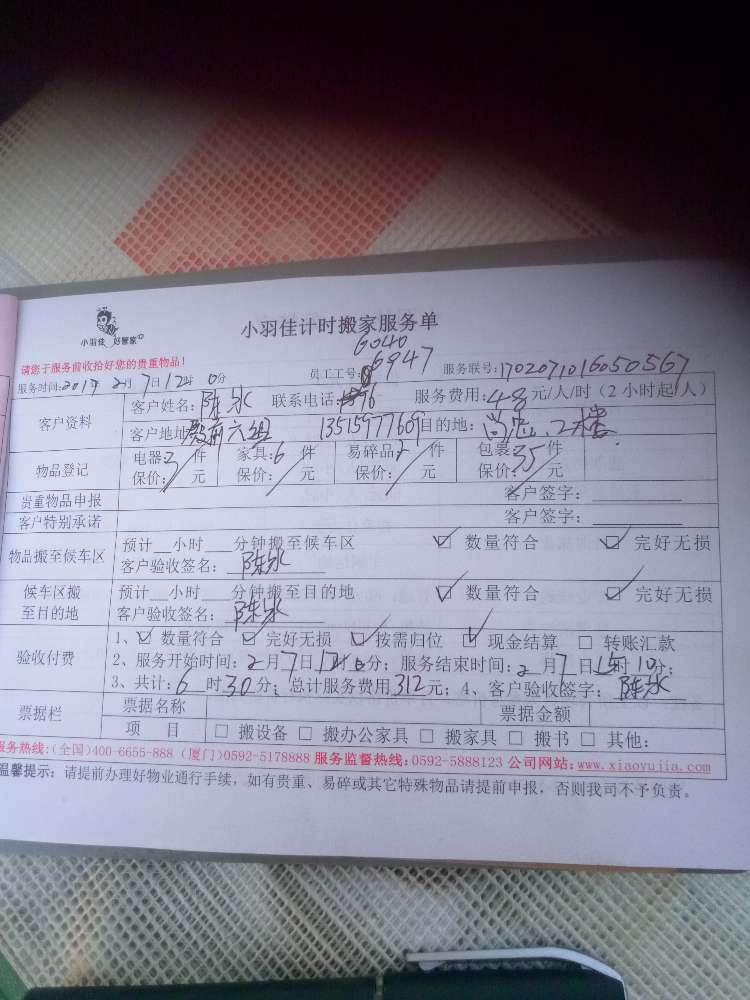 小羽佳 好管家
小羽佳计时搬家服务单
6040
请您于服务前收拾好您的贵重物品！
员工工号: 6947
服务联号: 1702071016050567
服务时间: 2017 2月7日12时0分
客户资料
客户姓名: 陈水 联系电话: 服务费用: 48元/人/时（2小时起/人）
客户地址: 殿前六组 13515977609 目的地:
物品登记
电器: 3件 家具: 6件 易碎品: 件 包裹: 35件
保价: 元 保价: 元 保价: 元 保价: 元
贵重物品申报 客户签字:
客户特别承诺 客户签字:
物品搬至候车区
预计__小时__分钟搬至候车区 ☑ 数量符合 ☑ 完好无损
客户验收签名: 陈水
候车区搬至目的地
预计__小时__分钟搬至目的地 ☑ 数量符合 ☑ 完好无损
客户验收签名: 陈水
验收付费
1、☑ 数量符合 ☑ 完好无损 ☑ 按需归位 ☑ 现金结算 □ 转账汇款
2、服务开始时间: 2月7日12时0分; 服务结束时间: 2月7日15时10分;
3、共计: 6时30分; 总计服务费用312元; 4、客户验收签字: 陈水
票据栏
票据名称 票据金额
项 目 □ 搬设备 □ 搬办公家具 □ 搬家具 □ 搬书 □ 其他:
服务热线:(全国)400-6655-888 (厦门)0592-5178888 服务监督热线:0592-5888123 公司网站:www.xiaoyujia.com
温馨提示: 请提前办理好物业通行手续，如有贵重、易碎或其它特殊物品请提前申报，否则我司不予负责。